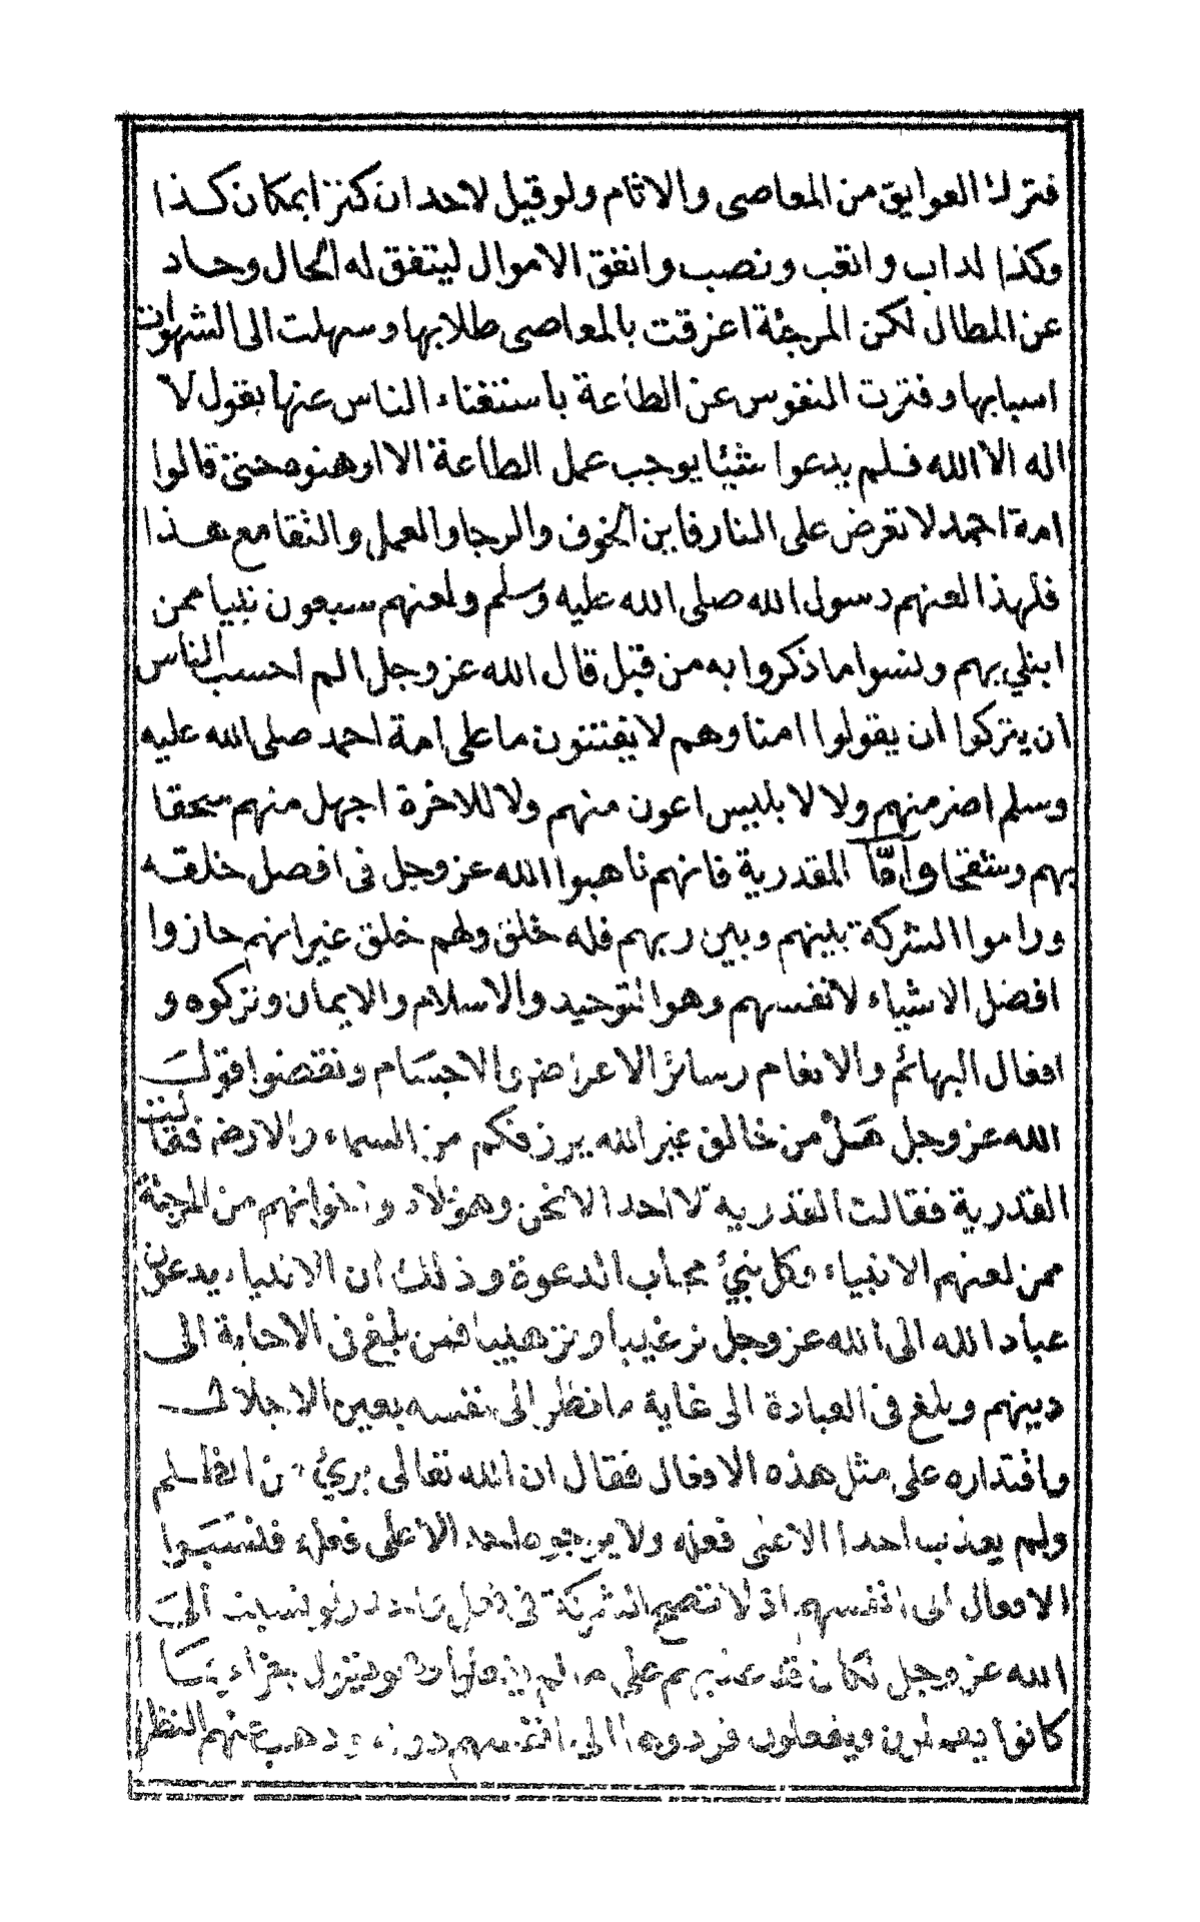 فترك العوايق من المعاصى والاثام ولو قيل لاحد ان كنزا بمكان كذا
وكذا لداب واتعب ونصب وانفق الاموال ليتفق له الحال وحاد
عن المطال لكن المرجئة اعزقت بالمعاصى طلابها وسهلت الى الشهوات
اسبابها وفترت النفوس عن الطاعة باستغناء الناس عنها بقول لا
اله الا الله فلم يدعوا شيئا يوجب عمل الطاعة الا اوهنوه حتى قالوا
امة احمد لا تعرض على النار فاين الخوف والرجا والعمل والتقا مع هذا
فلهذا لعنهم رسول الله صلى الله عليه وسلم ولعنهم سبعون نبيا ممن
ابتلي بهم ونسوا ما ذكروا به من قبل قال الله عز وجل الم احسب الناس
ان يتركوا ان يقولوا امنا وهم لا يفتنون ما على امة احمد صلى الله عليه
وسلم اضر منهم ولا لابليس اعون منهم ولا للاخرة اجهل منهم سحقا
بهم وشقحا وامّا القدرية فانهم ناهبوا الله عز وجل فى افضل خلقه
وراموا الشركة بينهم وبين ربهم فله خلق ولهم خلق غير انهم حازوا
افضل الاشياء لانفسهم وهو التوحيد والاسلام والايمان وتركوه و
افعال البهائم والانعام وسائر الاعراض والاجسام ونقضوا قول
الله عز وجل هل من خالق غير الله يرزقكم من السماء والارض فقالت
القدرية فقالت القدريه لا احد الا نحن وهؤلاء واخوانهم من المرجئة
ممن لعنهم الانبياء وكل نبيّ مجاب الدعوة وذلك ان الانبياء يدعون
عباد الله الى الله عز وجل ترغيبا وترهيبا فمن بلغ فى الاجابة الى
دينهم وبلغ فى العبادة الى غاية ما نظر الى نفسه بعين الاجلال
واقتداره على مثل هذه الافعال فقال ان الله تعالى بريء من الظلم
ولم يعذب احدا الا على فعله ولا يرجوه احد الا على فعله فنسبوا
الافعال الى انفسهم اذ لا تصح الشركة فى فعل واحد ولو نسبت الى
الله عز وجل لكان قد عذبهم على ما لم يفعلوا وقوله تنزل جزاء بما
كانوا يعملون ويفعلون فردوها الى انفسهم دونه ذهب عنهم النظر